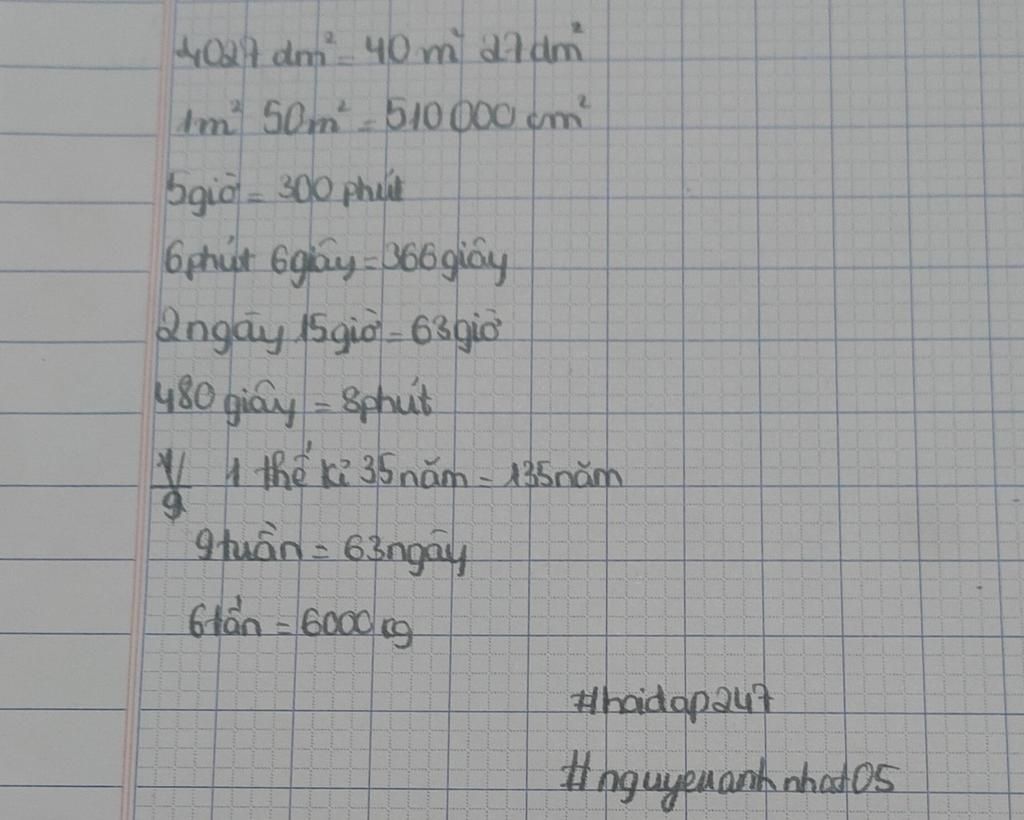 4027 dm² = 40 m² 27 dm²
1m² 50m² = 510000 cm²
5 giờ = 300 phút
6 phút 6 giây = 366 giây
2 ngày 15 giờ = 63 giờ
480 giây = 8 phút
1/9 1 thế kỉ 35 năm = 135 năm
9 tuần = 63 ngày
6 tấn = 6000 kg
#hoidap247
#nguyenanhnhat05